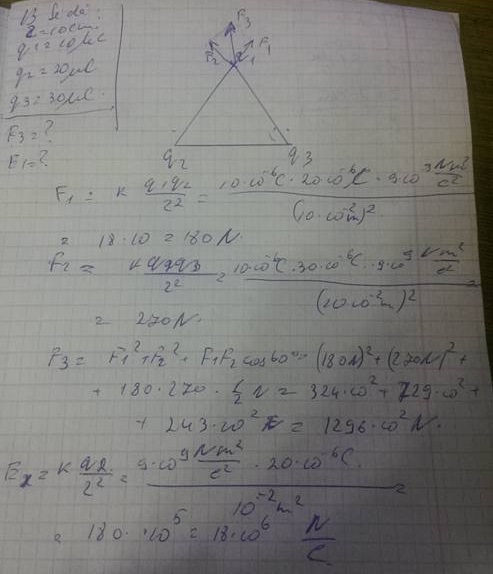 13 Se dă:
r = 10 cm.
q1 = 10 μC
q2 = 20 μC
q3 = 30 μC.
F3 = ?
E1 = ?
F3
F2 F1
q1
q2 q3
F1 = k q1q2/r² = 10·10⁻⁶C·20·10⁻⁶C·9·10⁹ Nm²/C² / (10·10⁻²m)²
= 18·10 = 180 N.
F2 = k q1q3/r² = 10·10⁻⁶C·30·10⁻⁶C·9·10⁹ Nm²/C² / (10·10⁻²m)²
= 270 N.
F3 = F1² + F2² + F1F2 cos60° = (180N)² + (270N)² +
+ 180·270·1/2 N = 324·10² + 729·10² +
+ 243·10² N = 1296·10² N.
E1 = k q2/r² = 9·10⁹ Nm²/C² · 20·10⁻⁶C / 10⁻² m² =
= 180·10⁵ = 18·10⁶ N/C